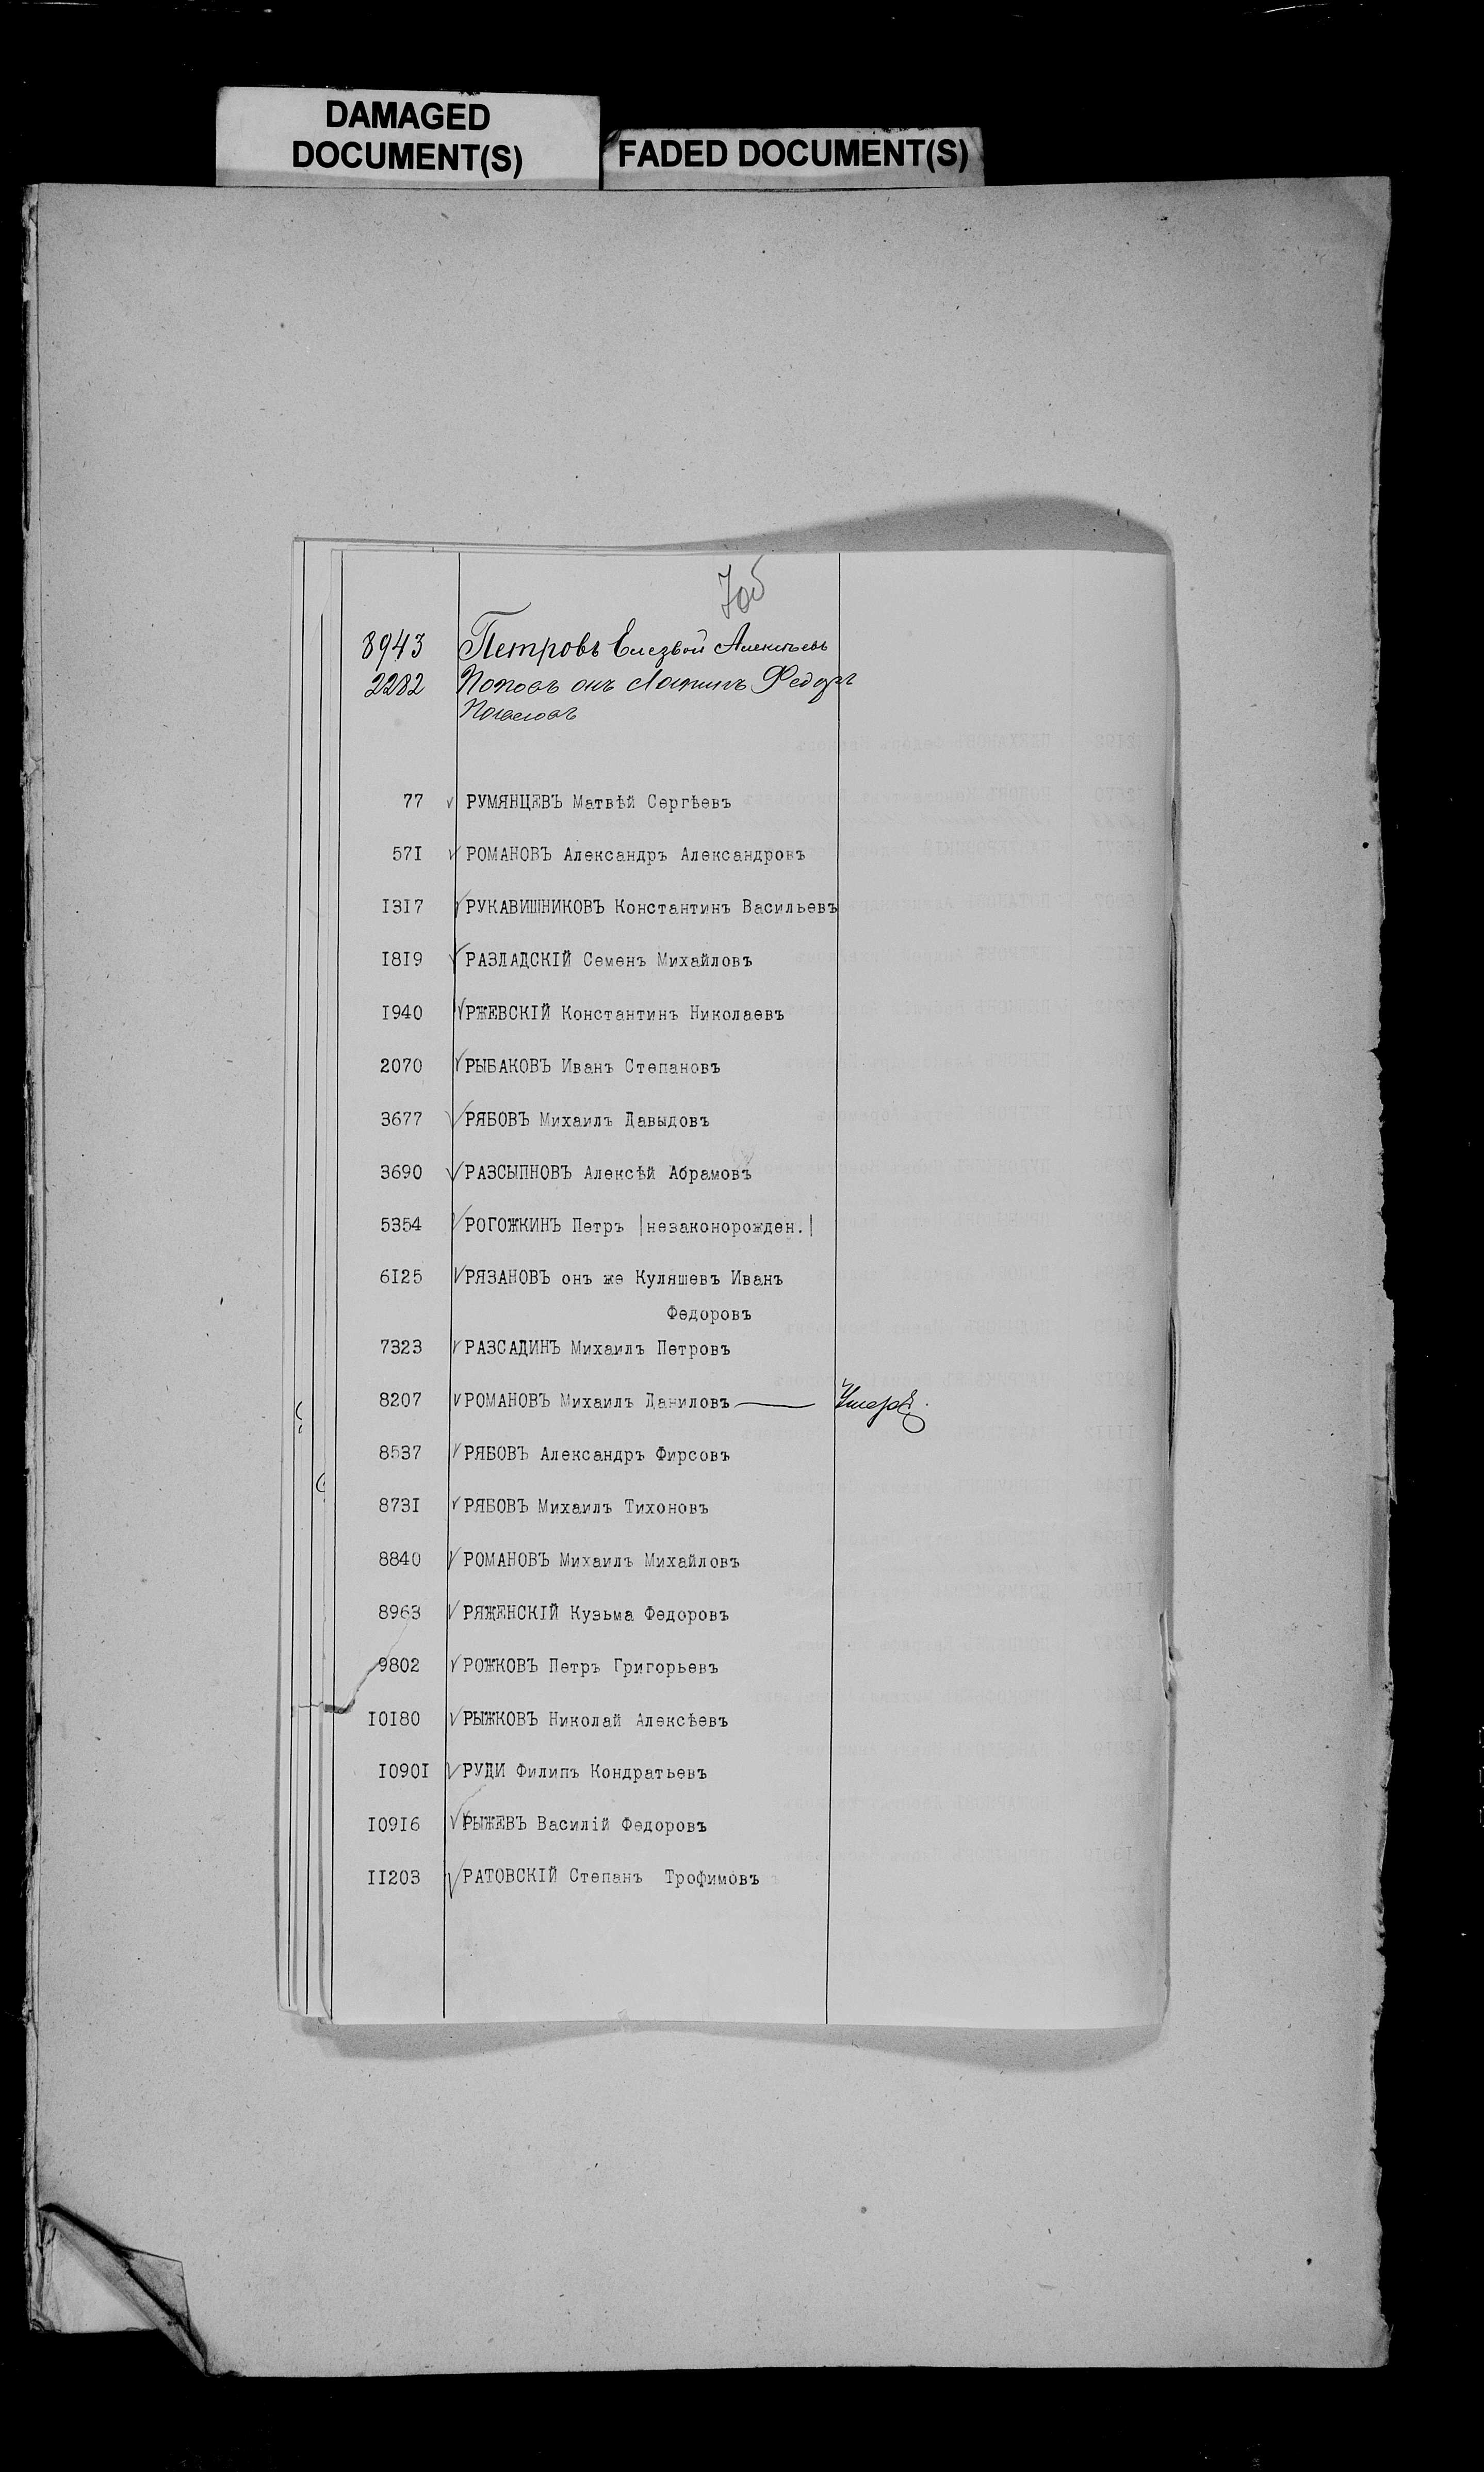 DAMAGED
DOCUMENT(S)
FADED DOCUMENT(S)
7об
8943 Петровъ Елезвой
2282 Поповъ онъ Лапинъ Федоръ
77 РУМЯНЦЕВЪ Матвѣй Сергѣевъ
57I РОМАНОВЪ Александръ Александровъ
I3I7 РУКАВИШНИКОВЪ Константинъ Васильевъ
I8I9 РАЗЛАДСКІЙ Семенъ Михайловъ
I940 РЖЕВСКІЙ Константинъ Николаевъ
2070 РЫБАКОВЪ Иванъ Степановъ
3677 РЯБОВЪ Михаилъ Давыдовъ
3690 РАЗСЫПНОВЪ Алексѣй Абрамовъ
5354 РОГОЖКИНЪ Петръ |незаконорожден.|
6I25 РЯЗАНОВЪ онъ же Куляшевъ Иванъ
Федоровъ
7323 РАЗСАДИНЪ Михаилъ Петровъ
8207 РОМАНОВЪ Михаилъ Даниловъ — Умеръ.
8537 РЯБОВЪ Александръ Фирсовъ
873I РЯБОВЪ Михаилъ Тихоновъ
8840 РОМАНОВЪ Михаилъ Михайловъ
8963 РЯЖЕНСКІЙ Кузьма Федоровъ
9802 РОЖКОВЪ Петръ Григорьевъ
I0I80 РЫЖКОВЪ Николай Алексѣевъ
I090I РУДИ Филипъ Кондратьевъ
I09I6 РЫЖЕВЪ Василій Федоровъ
II203 РАТОВСКІЙ Степанъ Трофимовъ